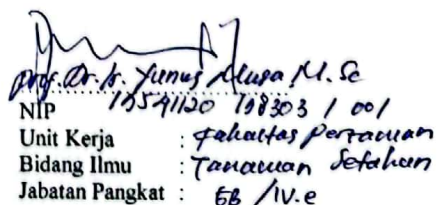 Prof. Dr. Ir. Yunus Musa M.Sc
NIP 19541120 198303 1 001
Unit Kerja : Fakultas Pertanian
Bidang Ilmu : Tanaman Setahun
Jabatan Pangkat : GB / IV.e